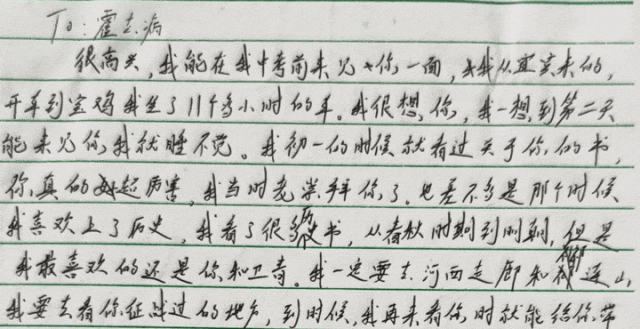 To:霍去病
很高兴,我能在我中考前来见你一面,我从宜宾来的,
开车到宝鸡我坐了11个多小时的车。我很想你,我一想到第二天
能来见你我就睡不觉。我初一的时候就看过关于你的书,
你真的超厉害,我当时老崇拜你了。也差不多是那个时候
我喜欢上了历史,我看了很多历史书,从春秋时期到明朝,但是
我最喜欢的还是你和卫青。我一定要去河西走廊和祁连山,
我要去看你征战过的地方,到时候,我再来看你时就能给你带